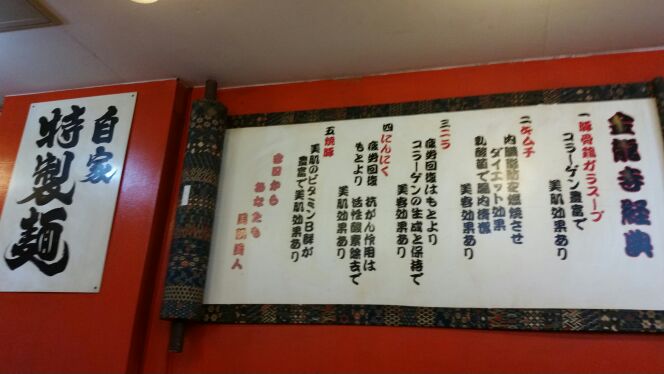 金龍寺経典
一豚骨鶏ガラスープ
コラーゲン豊富で
美肌効果あり
二キムチ
内臓脂肪を燃焼させ
ダイエット効果
乳酸菌で腸内清掃
美容効果あり
三ニラ
疲労回復はもとより
コラーゲンの生成と保持で
美容効果あり
四にんにく
疲労回復 抗がん作用は
もとより 活性酸素除去で
美肌効果あり
五焼豚
美肌のビタミンB群が
豊富で美肌効果あり
今日から
あなたも
美肌美人
自家
特製麺